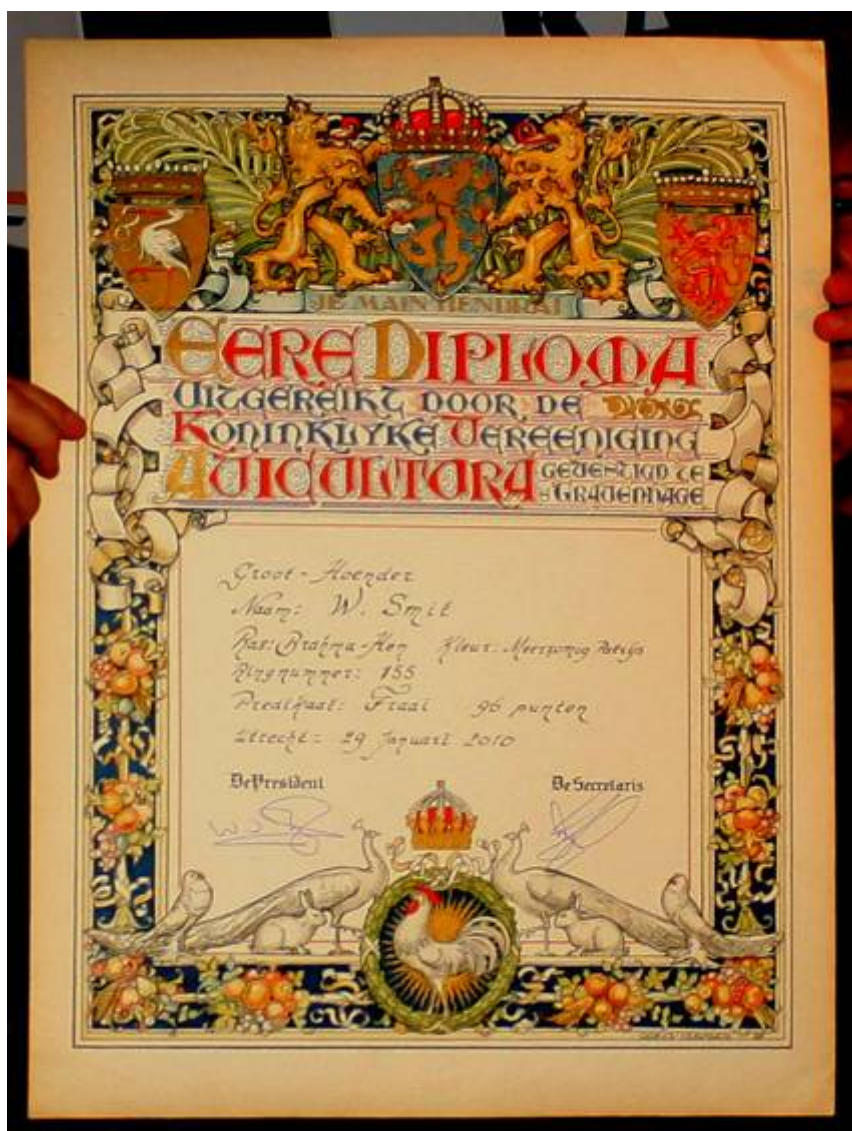 JE MAINTIENDRAI
EERE DIPLOMA
UITGEREIKT DOOR DE
KONINKLYKE VEREENIGING
AVICULTURA GEVESTIGD TE
'S-GRAVENHAGE
Groot-Hoender
Naam: W. Smit
Ras: Brahma-Hen Kleur: Meerzomig Patrijs
Ringnummer: 155
Predikaat: Fraai 96 punten
Utrecht: 29 Januari 2010
De President De Secretaris